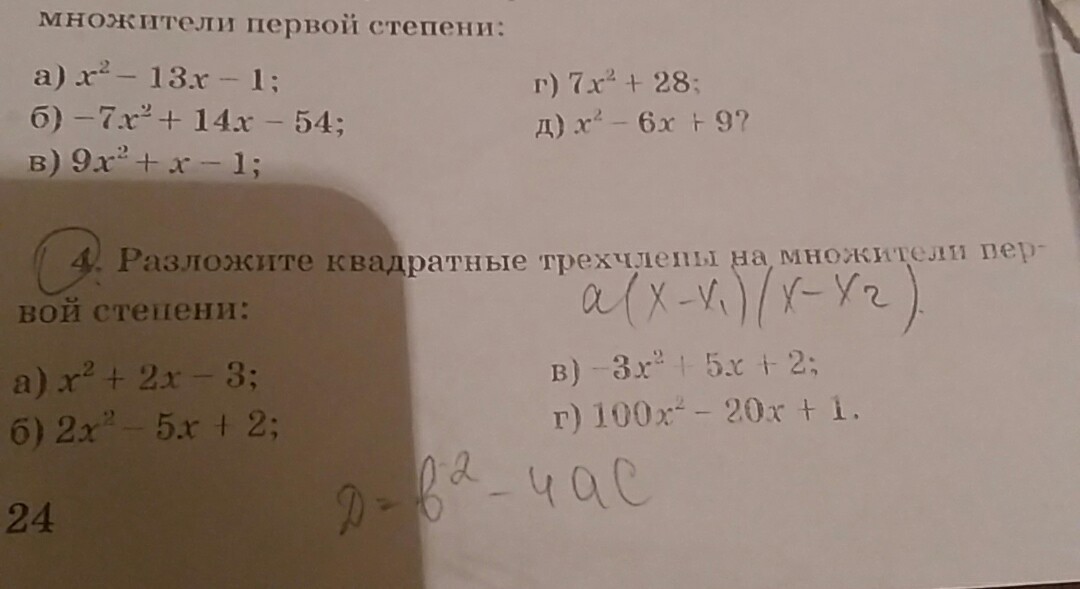 множители первой степени:
а) x² − 13x − 1;
б) −7x² + 14x − 54;
в) 9x² + x − 1;
г) 7x² + 28;
д) x² − 6x + 9?
4. Разложите квадратные трехчлены на множители пер-
вой степени:
a(x−x₁)(x−x₂).
а) x² + 2x − 3;
б) 2x² − 5x + 2;
в) −3x² + 5x + 2;
г) 100x² − 20x + 1.
D = b² − 4ac
24